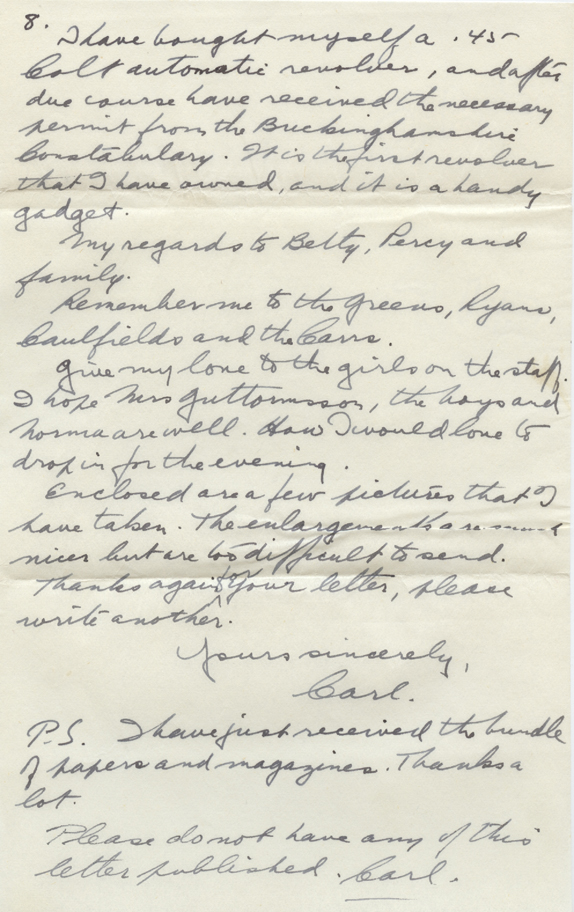 8.
I have bought myself a .45
Colt automatic revolver, and after
due course have received the necessary
permit from the Buckinghamshire
Constabulary. It is the first revolver
that I have owned, and it is a handy
gadget.
My regards to Betty, Percy and
family.
Remember me to the Greens, Ryans,
Caulfields and the Carrs.
Give my love to the girls on the staff.
I hope Mrs Guttormsson, the boys and
Norma are well. How I would love to
drop in for the evening.
Enclosed are a few pictures that I
have taken. The enlargements are much
nicer but are too difficult to send.
Thanks again for your letter, please
write another.
Yours sincerely,
Carl.
P.S. I have just received the bundle
of papers and magazines. Thanks a
lot.
Please do not have any of this
letter published. Carl.